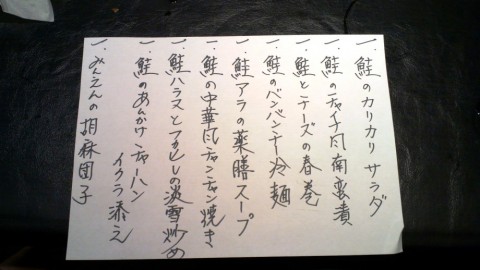 一. 鮭のカリカリサラダ
一. 鮭のチャイナ風南蛮漬
一. 鮭とチーズの春巻
一. 鮭のバンバンジー冷麺
一. 鮭アラの薬膳スープ
一. 鮭の中華風チャンチャン焼き
一. 鮭ハラスとアワビの淡雪炒め
一. 鮭のあんかけチャーハン
イクラ添え
一. みんえんの胡麻団子